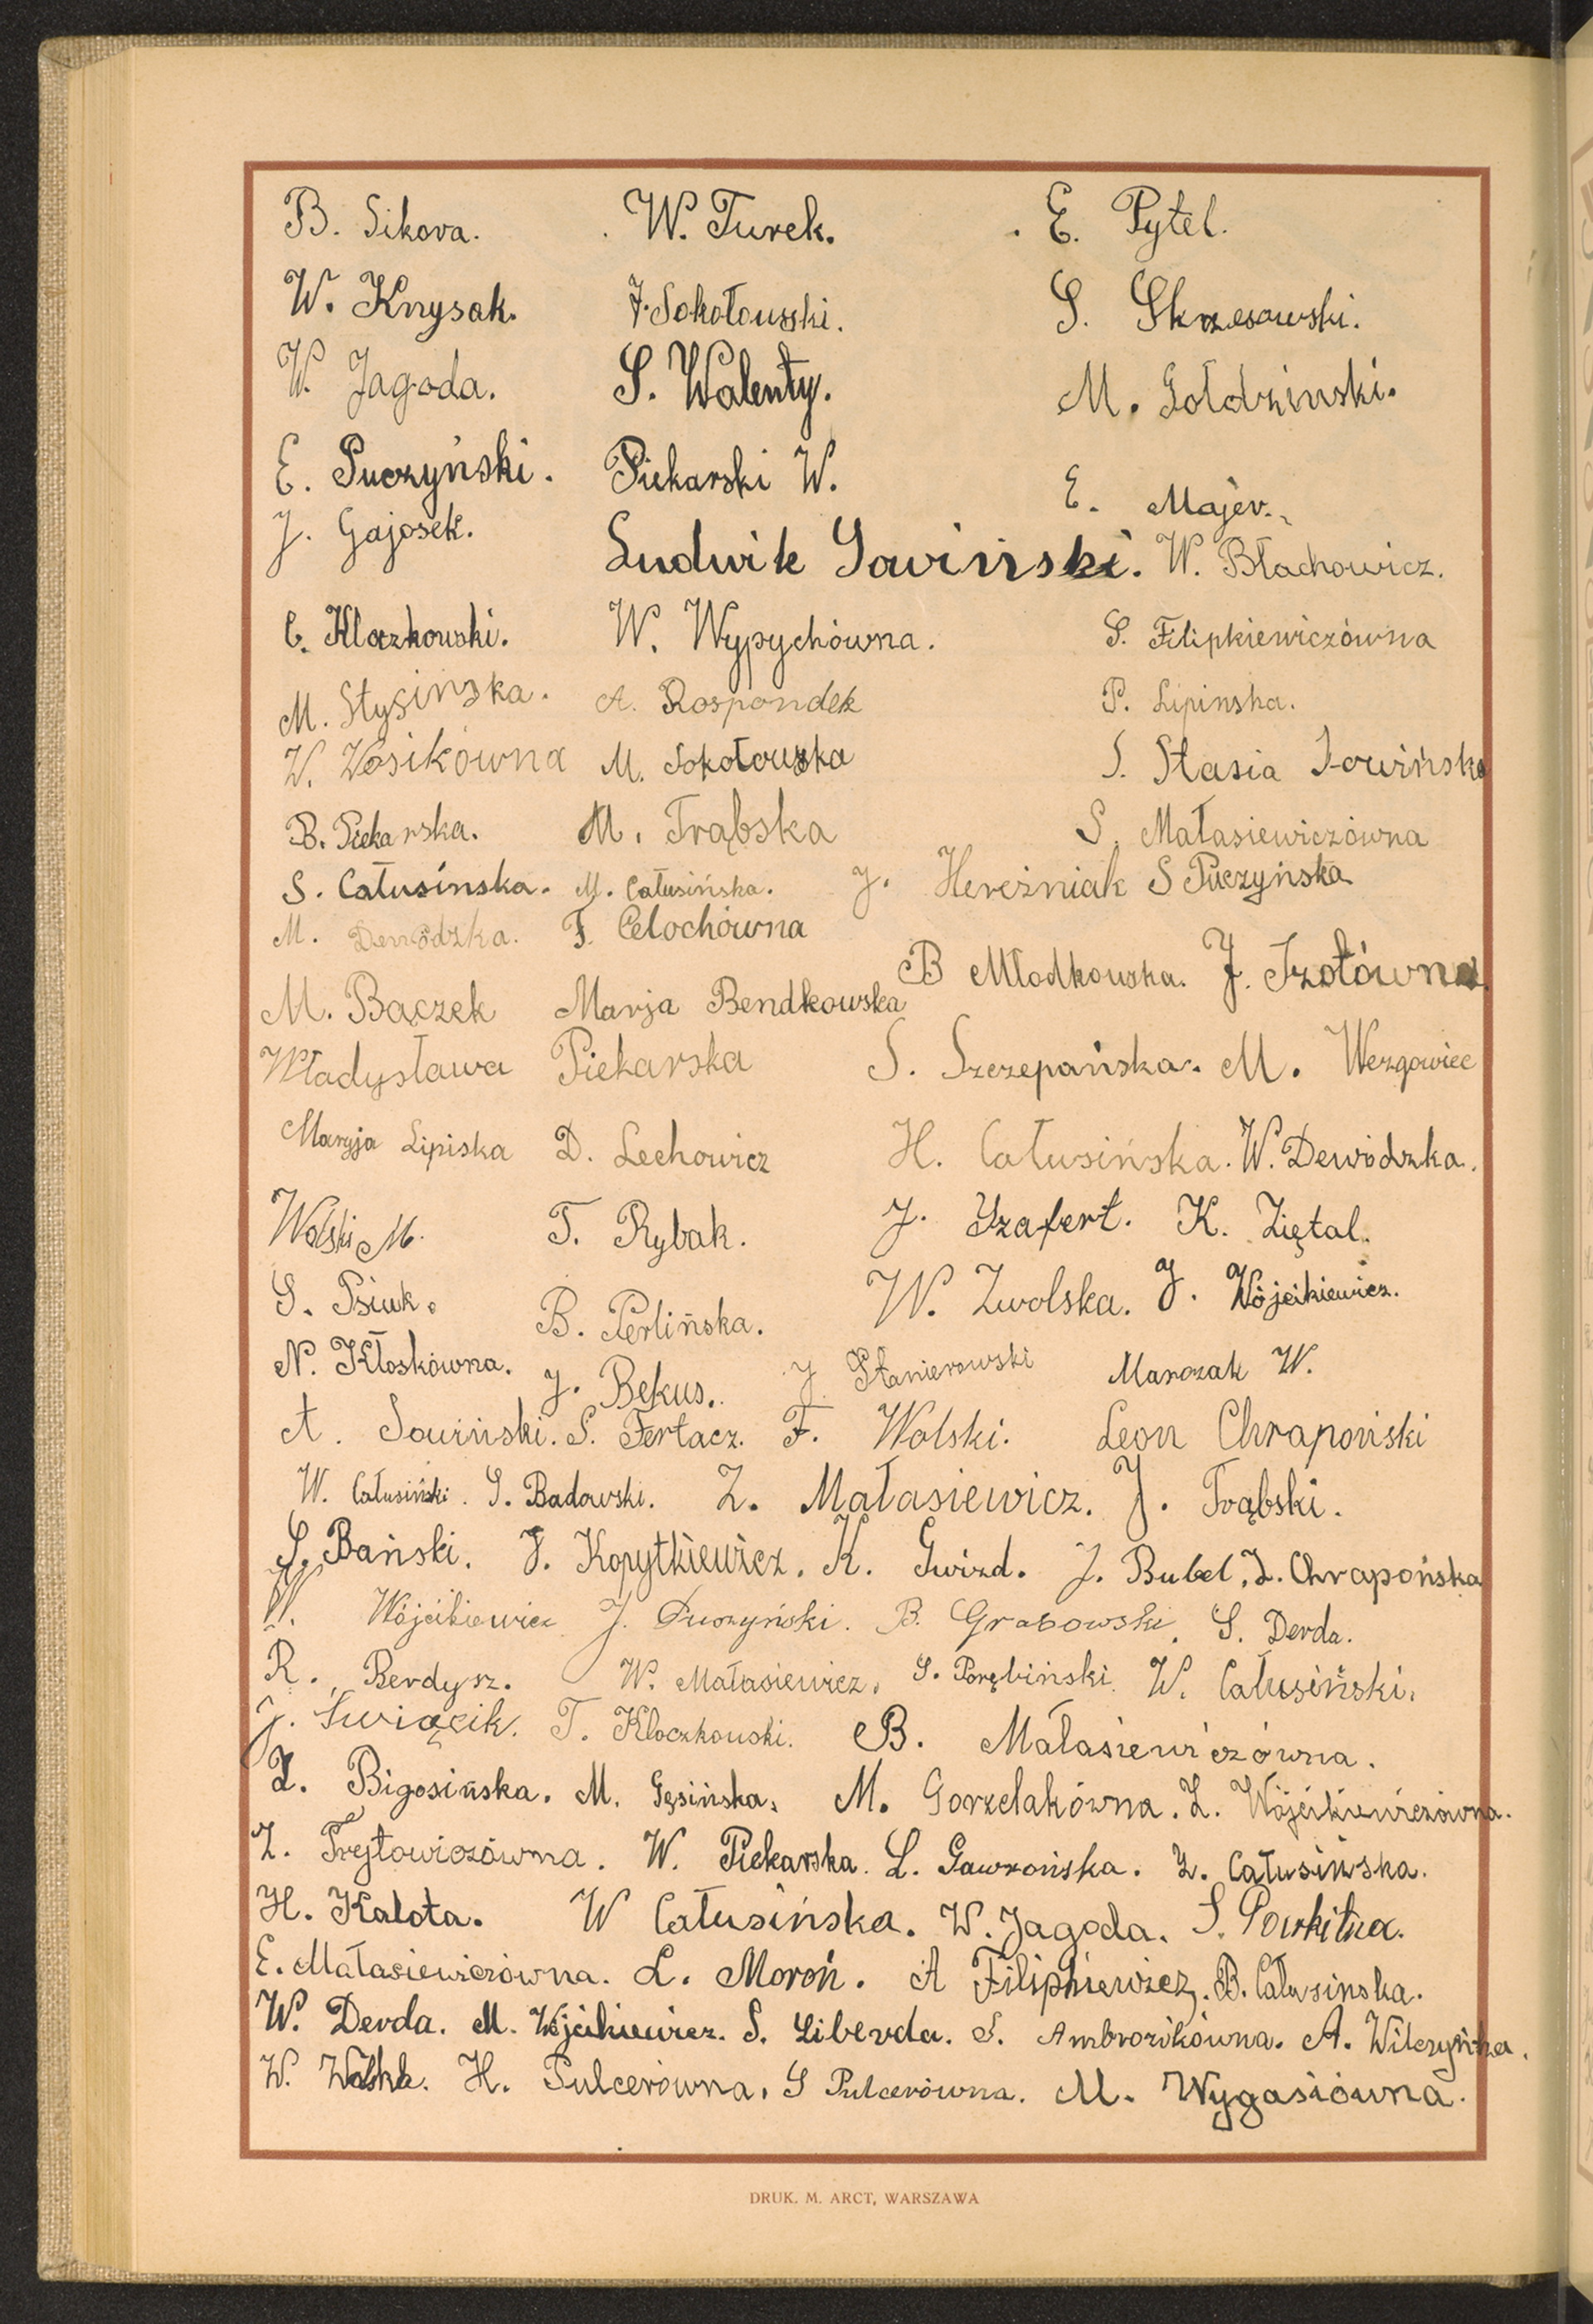 B. Sikora. W. Turek. E. Pytel.
W. Knysak. J. Sokołowski. S. Skrzesowski.
W. Jagoda. S. Walenty. M. Gołdzinski.
E. Puczyński. Piekarski W. E. Majer.
J. Gajosek. Ludwik Sowiński. W. Błachowicz.
C. Kloczkowski. W. Wypychówna. S. Filipkiewiczówna
M. Stysinska. A. Rospondek P. Lipinska.
W. Wosikówna M. Sokołowska S. Stasia Sowińska
B. Piekarska. M. Trąbska S. Małasiewiczówna
S. Całusinska. M. Całusińska. J. Hereźniak S Puczyńska
M. Dewódzka. F. Celochówna
B Młodkowska. J. Izołówna.
M. Bączek Marja Bendkowska
Władysława Piekarska S. Szczepańska. M. Wezgowiec
Maryja Lipiska D. Lechowicz H. Całusińska. W. Dewódzka.
Wolski M. T. Rybak. J. Szafert. K. Ziętal.
S. Psiuk. B. Perlińska. W. Zwolska. J. Wójcikiewicz.
N. Kłoskówna. J. Bekus. J. Stanierowski Marczak W.
A. Sowiński. S. Fertacz. F. Wolski. Leon Chrapoński
W. Całusiński. S. Badowski. Z. Małasiewicz. J. Trąbski.
S. Bański. J. Kopytkiewicz. K. Gwizd. J. Bubel. Z. Chrapońska
W. Wójcikiewicz J. Puczyński. B. Grabowski. S. Derda.
R. Berdysz. W. Małasiewicz. S. Porębiński. W. Całusiński.
J. Świącik. T. Kloczkowski. B. Małasiewiczówna.
Z. Bigosińska. M. Gęsińska. M. Gorzelakówna. Z. Wójcikiewiczówna.
Z. Frejtowiczówna. W. Piekarska. L. Gawrońska. Z. Całusińska.
H. Kalota. W Całusińska. W. Jagoda. S.
E. Małasiewiczówna. L. Moroń. A Filipkiewicz. B. Całusinska.
W. Derda. M. Wójcikiewicz. S. Liberda. S. Ambrozikówna. A. Wilczyńska.
W. Wolska. H. Pulcerówna. S Pulcerówna. M. Wygasiówna.
DRUK. M. ARCT, WARSZAWA